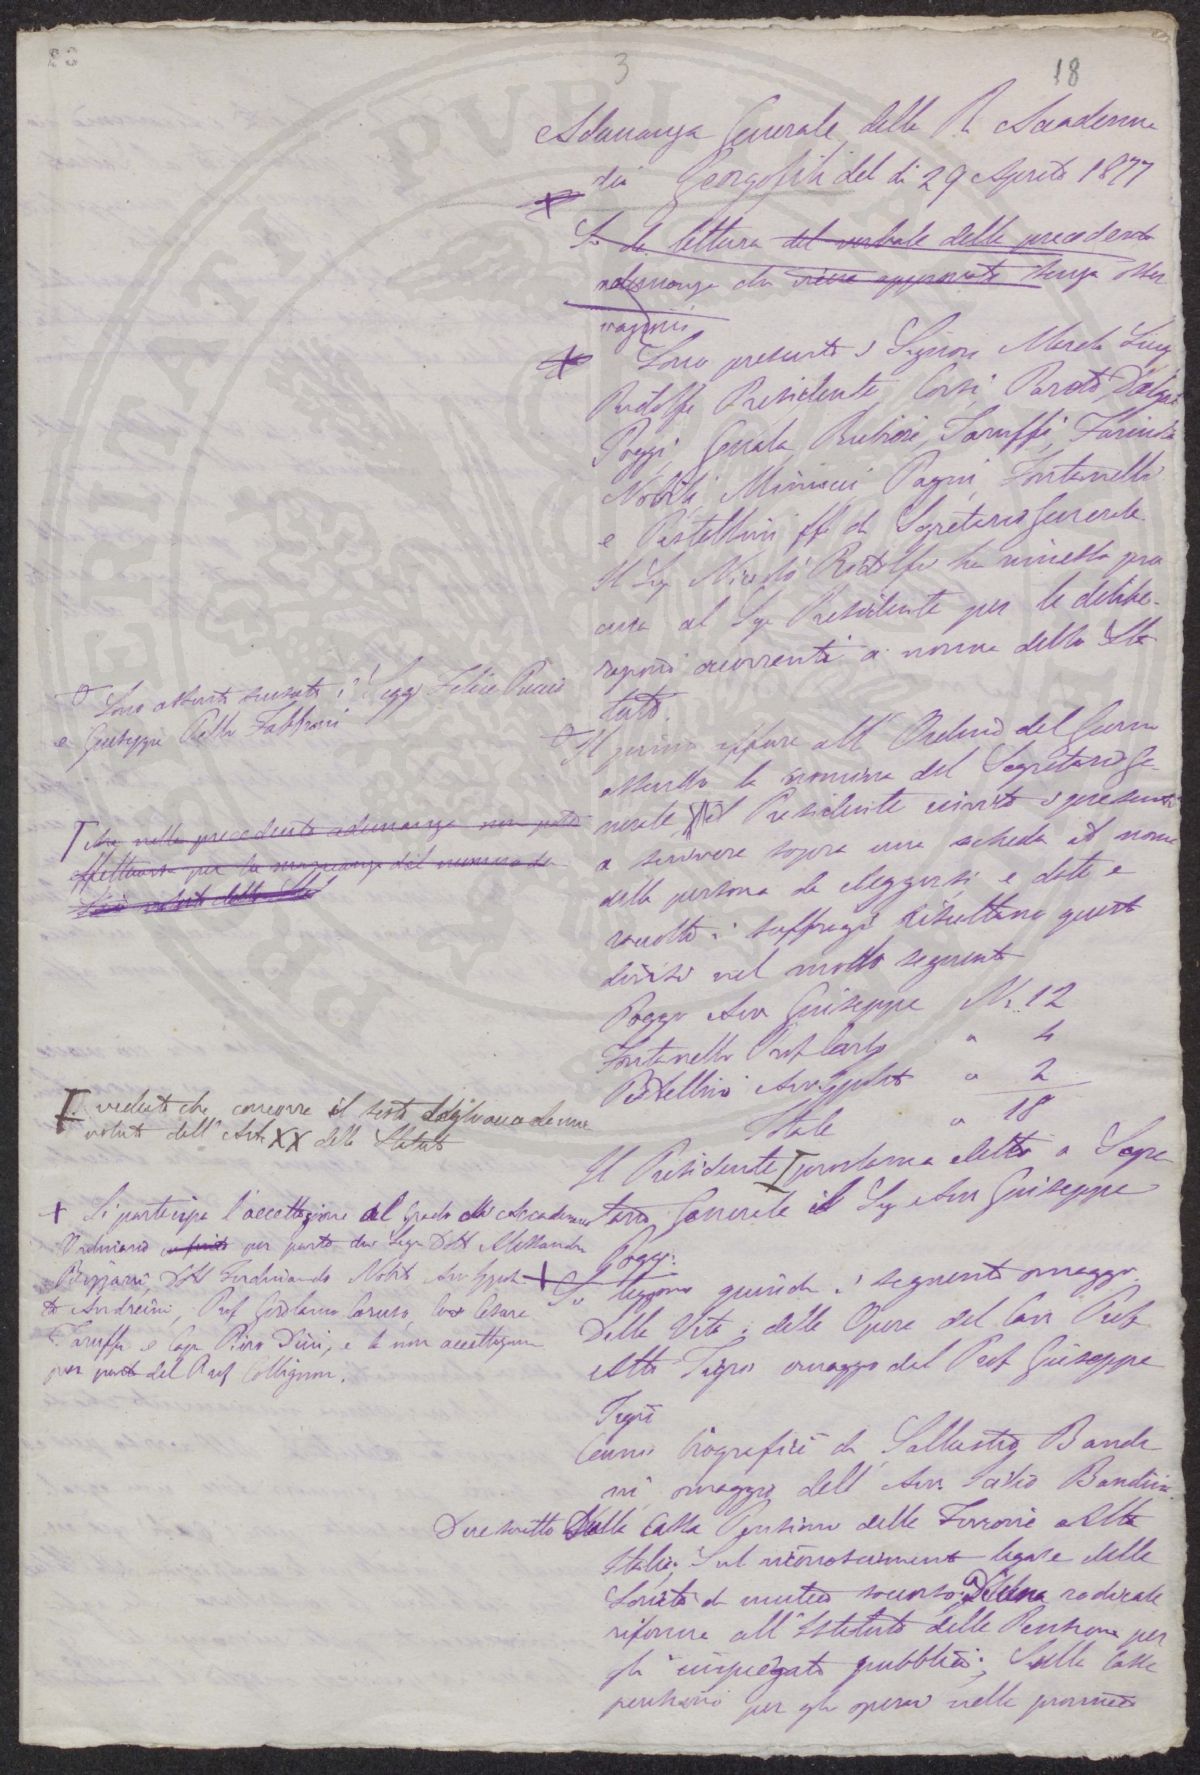 3
18
Adunanza Generale della R. Accademia
dei Georgofili del dì 29 Aprile 1877
Si dà lettura del verbale della precedente
adunanza che viene approvato senza osser
vazioni
Sono presenti i Signori March. Luigi
Ridolfi Presidente, Corsi, Pareto, Dalgas
Poggi, Genala, Rubieri, Taruffi, Farinola
Nobili, Minucci, Pagni, Fontanelli
e Pestellini ff. di Segretario Generale
Il Sig. Niccolò Ridolfi ha rimessa pro
cura al Sig. Presidente per le delibe-
razioni occorrenti a norma dello Sta
tuto.
Sono assenti scusati i Sigg. Felice Pucci
e Giuseppe Della Fabbroni
Il primo affare all'Ordine del Giorno
essendo la nomina del Segretario Ge-
nerale il Presidente invita i presenti
a scrivere sopra una scheda il nome
della persona da eleggersi e date e
raccolti i suffragi risultano questi
divisi nel modo seguente
che nella precedente adunanza non potè
effettuarsi per la mancanza del numero da
Poggi Avv. Giuseppe N. 12
Fontanelli Prof. Carlo " 4
Pestellini Avv. Ippolito " 2
Totale " 18
veduto che concorre il sesto degli accademici
voluto dall'Art. XX dello Statuto
Il Presidente proclama eletto a Segre
tario Generale il Sig. Avv. Giuseppe
Poggi.
+ Si partecipa l'accettazione al Grado di Accademico
Ordinario per parte dei Sigg. Dott. Alessandro
Bizzarri, Dott. Ferdinando Nobili, Avv. Ippoli
to Andreini, Prof. Girolamo Caruso, Cav. Cesare
Taruffi e Cap. Piero Dini, e la non accettazione
per parte del Prof. Collignon.
Si leggono quindi i seguenti omaggi.
Della Vita e delle Opere del Cav. Prof.
Atto Tigri omaggio del Prof. Giuseppe
Tigri
Cenni biografici di Sallustio Bandi
ni, omaggio dell'Avv. Bandini
Direscritto Dalla Cassa Pensioni delle Ferrovie Alta
Italia; Sul riconoscimento legale delle
Società di mutuo soccorso; Di una radicale
riforma all'Istituto delle Pensioni per
gli impiegati pubblici; Sulle Casse
pensioni per gli operai nelle provincie